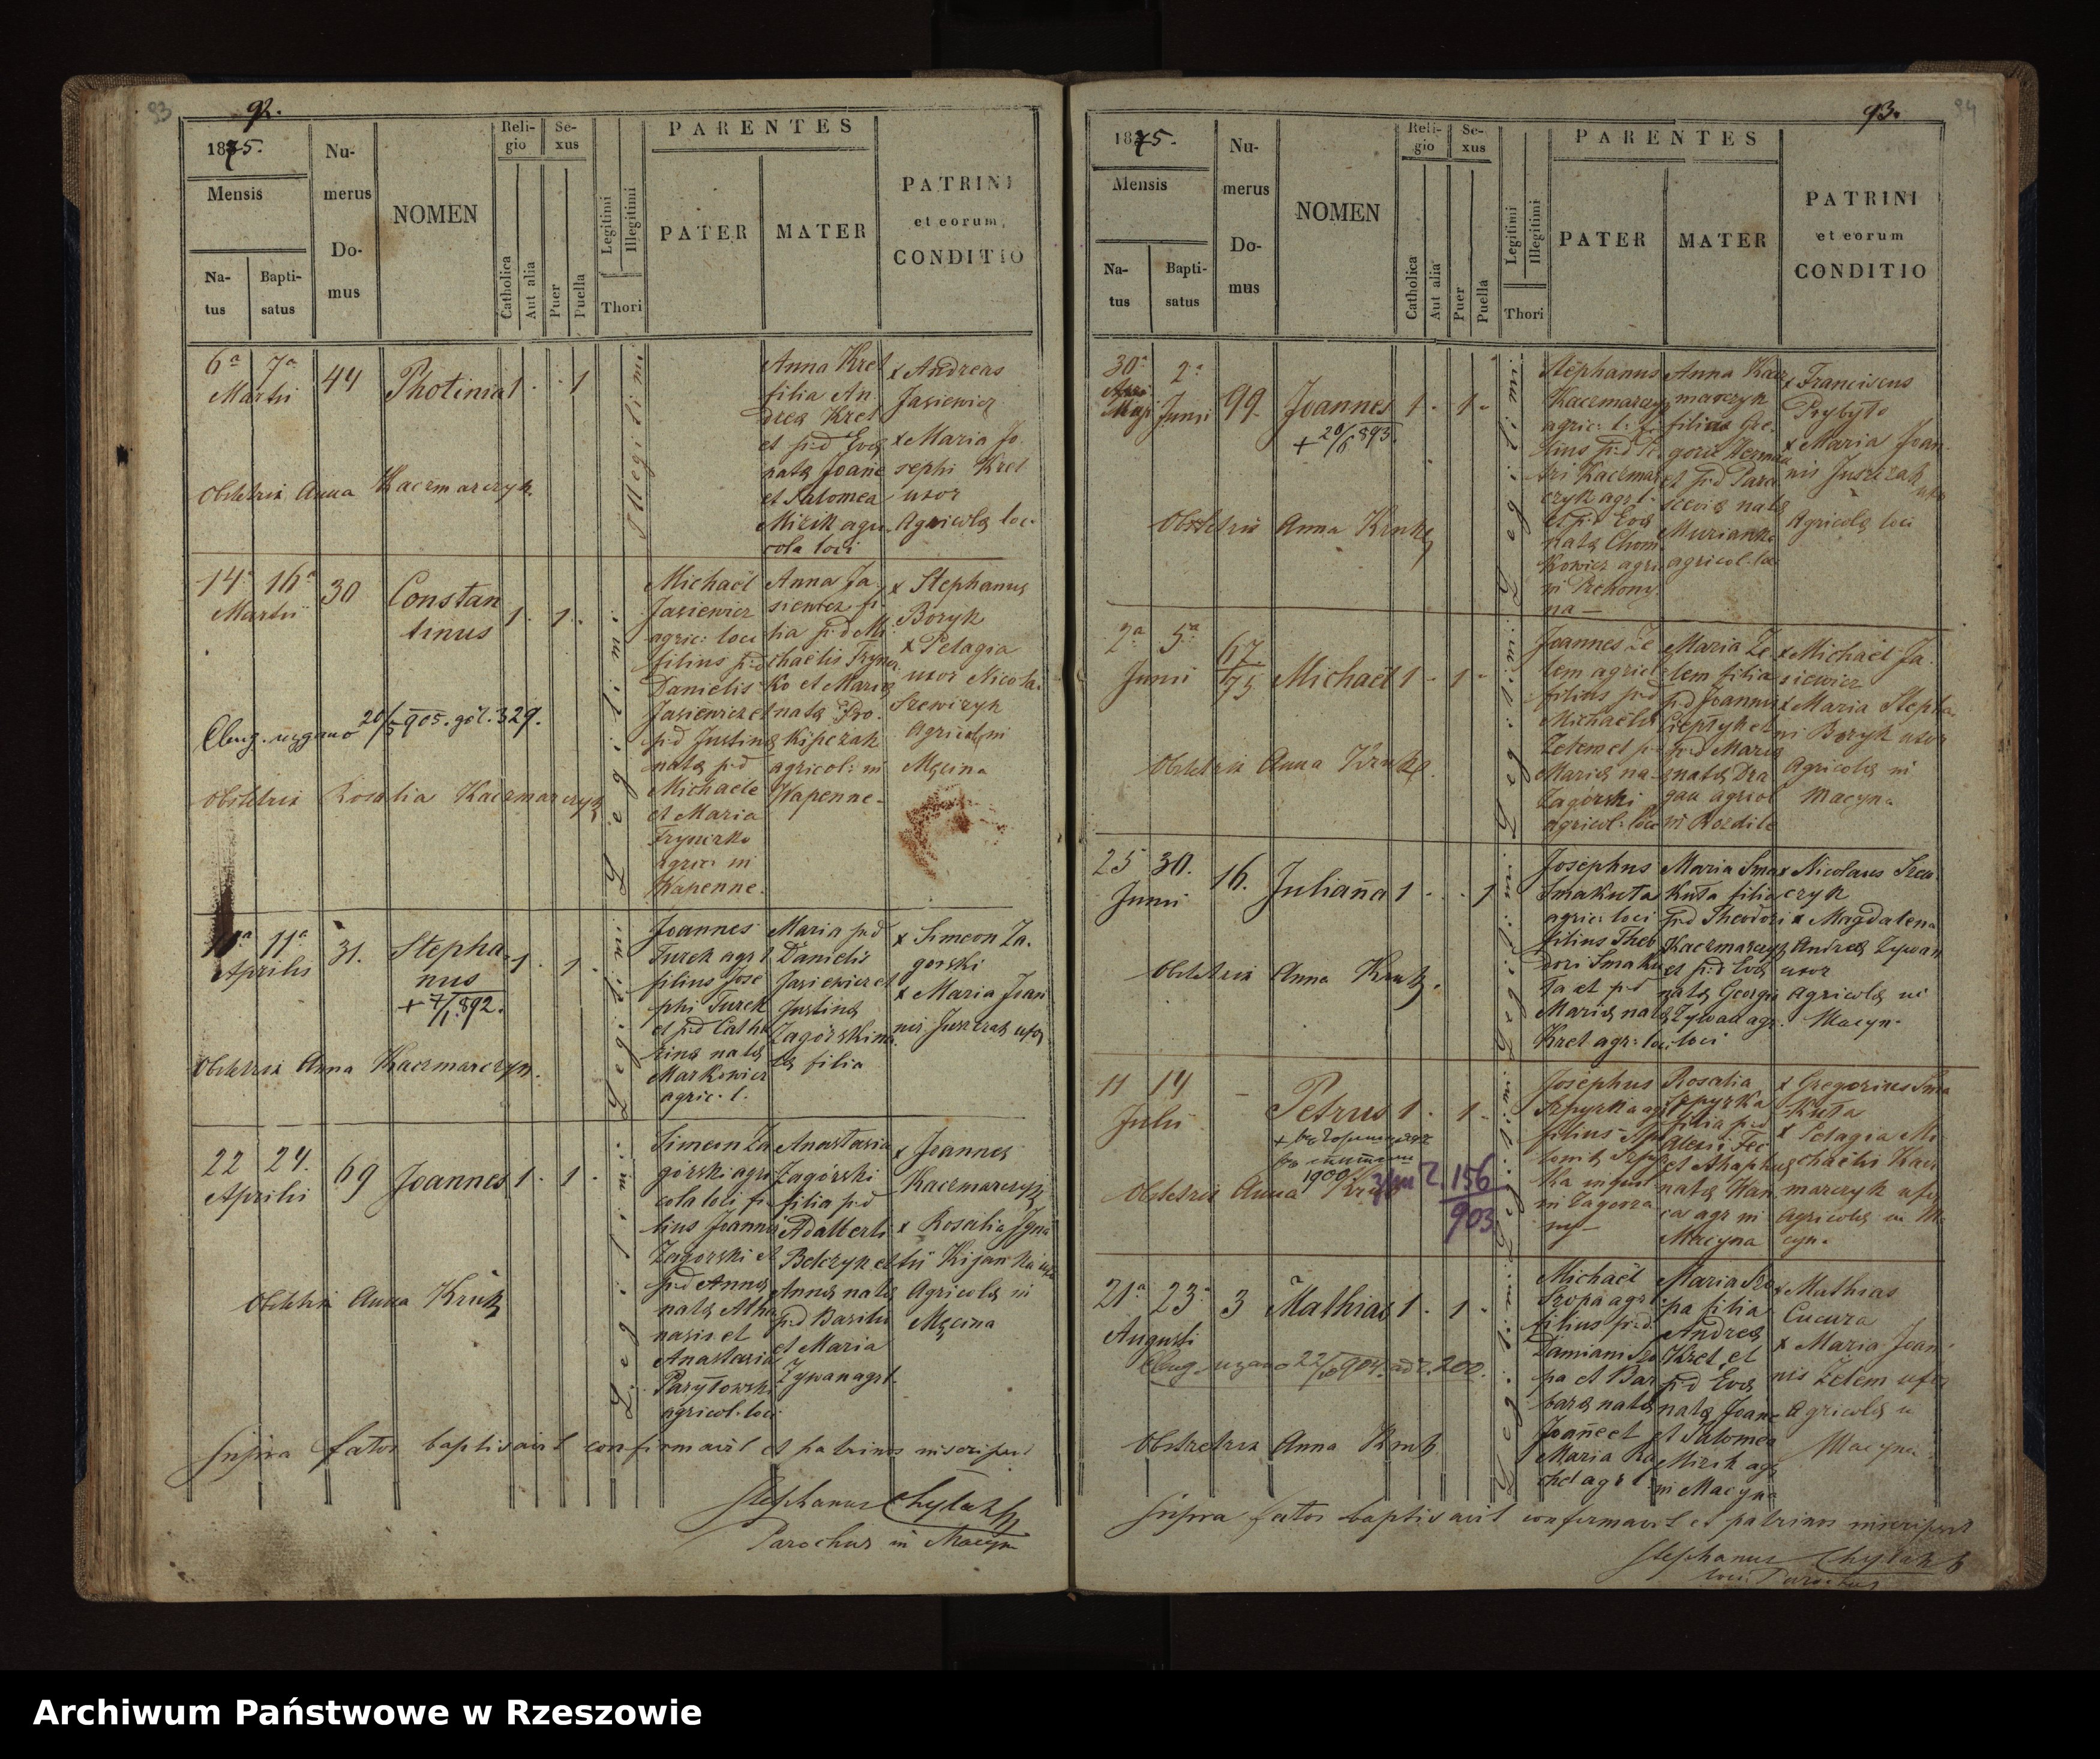 93
92.
1875.
Mensis
Na-
tus
Bapti-
satus
Nu-
merus
Do-
mus
NOMEN
Reli-
gio
Catholica
Aut alia
Se-
xus
Puer
Puella
Legitimi
Illegitimi
Thori
PARENTES
PATER
MATER
PATRINI
et eorum
CONDITIO
6a 7a
Martii
44
Photinia 1 · · 1
Illegitimi
Anna Kret
filia An
dreą Kret
et p.d Evą
natą Joane
et Salomea
Mizik agri
cola loci
x Andreas
Jasiewicz
x Maria Jo
sephi Kret
uxor
Agricolą loc.
Obstetrix Anna Kaczmarczyk.
14 16a
Martii
30
Constan
tinus
1 · 1 ·
Legitimi
Michaël
Jasiewicz
agric: loci
filius p.d
Danielis
Jasiewicz et
p.d Justiną
natą p.d
Michaele
et Maria
agric: in
Wapenne.
Anna Ja
siewicz fi
lia p.d Mi
chaëlis Fryna
ko et Marią
natą
Kipczak
agricol: in
Wapenne.
x Stephanus
Boryk
x Pelagia
uxor Nicolai
Szewczyk
Agricolą in
Męcina
20/5 905. 329.
Obstetrix Rosalia Kaczmarczyk
10a 11a
Aprilis
31.
Stepha
nus
+ 7/1.892.
1 · 1 ·
Legitimi
Joannes
Turek agr l
filius Jose
phi Turek
et p.d Catha
riną natą
Markowicz
agric. l.
Maria p.d
Danielis
Jasiewicz et
Justiną
Zagórski
filia
x Simeon Za
gorski
x Maria Joan
nis Juszczak uxor
Obstetrix Anna Kaczmarczyk.
22 24.
Aprilis
69
Joannes 1 · 1 ·
Legitimi
Simeon Za
górski agri
cola loci fi
lius Joannis
Zagorski et
p.d Anną
natą Atha
nasis et
Anastasia
Parytowski
agricol. loci
Anastasia
Zagórski
filia p.d
Adalberti
Belczyk et
Anną natą
p.d Basilii
et Maria
Zywan agr l.
x Joannes
Kaczmarczyk
x Rosalia Igna
tii Kijanka uxor
Agricolą in
Męcina
Obstetrix Anna Kruk
Supra fatos baptisavit confirmavit et patrinos inscripsit
Stephanus Chylak
Parochus in Macyn
94
93.
1875.
Mensis
Na-
tus
Bapti-
satus
Nu-
merus
Do-
mus
NOMEN
Reli-
gio
Catholica
Aut alia
Se-
xus
Puer
Puella
Legitimi
Illegitimi
Thori
PARENTES
PATER
MATER
PATRINI
et eorum
CONDITIO
30a 2a
Maji Junii
99.
Joannes 1 · 1 ·
+ 20/6 893.
Legitimi
Stephanus
Kaczmarczyk
agric: l: fi
lius p.d Pe
tri Kaczmar
czyk agr l.
et p.d Evą
natą Chom
kowicz agri
in
na
Anna Kacz
marczyk
filia Gre
gorii
et p.d Para
scevią natą
Murianka
agricol. loc
x Franciscus
Prybyło
x Maria Joan
nis Juszczak
uxor
Agricolą loci
Obstetrix Anna Kruk
2a 5a
Junii
67/75
Michaël 1 · 1 ·
Legitimi
Joannes Ze
lem agric l
filius p.d
Michaëlis
Zelem et p.d
Marią na
Zagórski
agricol: loci
Maria Ze
lem filia
p.d Joannis
et
p.d Marią
natą Dra
gan agricol
in Rozdile
x Michaël Ja
siewicz
x Maria Stepha
ni Boryk uxor
Agricolą in
Macyna
Obstetrix Anna Kruk.
25 30.
Junii
16.
Juliana 1 · · 1
Legitimi
Josephus
Smakuta
agric: loci
filius Theo
dori Smaku
ta et p.d
Marią natą
Kret agr: loci
Maria Sma
kuta filia
p.d Theodori
Kaczmarczyk
et p.d Evą
natą Georgii
Zywan agr.
loci
x Nicolaus Szew
czyk
x Magdalena
Andreą Zywan
uxor
Agricolą in
Macyn.
Obstetrix Anna Kruk.
11 14
Julii
–
Petrus 1 · 1 ·
1900
156
903
Legitimi
Josephus
Szpyrka agr
filius
in Zagorza
ny
Rosalia
Szpyrka
filia p.d
Alexii Fec
et
natą Wan
ca agr in
Macyna
x Gregorius Sma
kuta
x Pelagia Mi
chaëlis Kacz
marczyk uxor
Agricolą in M
cyn.
Obstetrix Anna Kruk
21a 23a
Augusti
3
Mathias 1 · 1 ·
Legitimi
Michaël
Szopa agr l.
filius p.d
Damiani Szo
pa et Bar
barą natą
Joane et
Maria Ra
chel agr l.
Maria Szo
pa filia
Andreą
Kret et
p.d Evą
natą Joane
et Salomea
Mizik agr
in Macyna
x Mathias
Cucura
x Maria Joan
nis Zelem uxor
Agricolą in
Macyna
22/10 904. 200.
Obstetrix Anna Kruk
Supra fatos baptisavit confirmavit et patrinos inscripsit
Stephanus Chylak
loci Parochus
Archiwum Państwowe w Rzeszowie